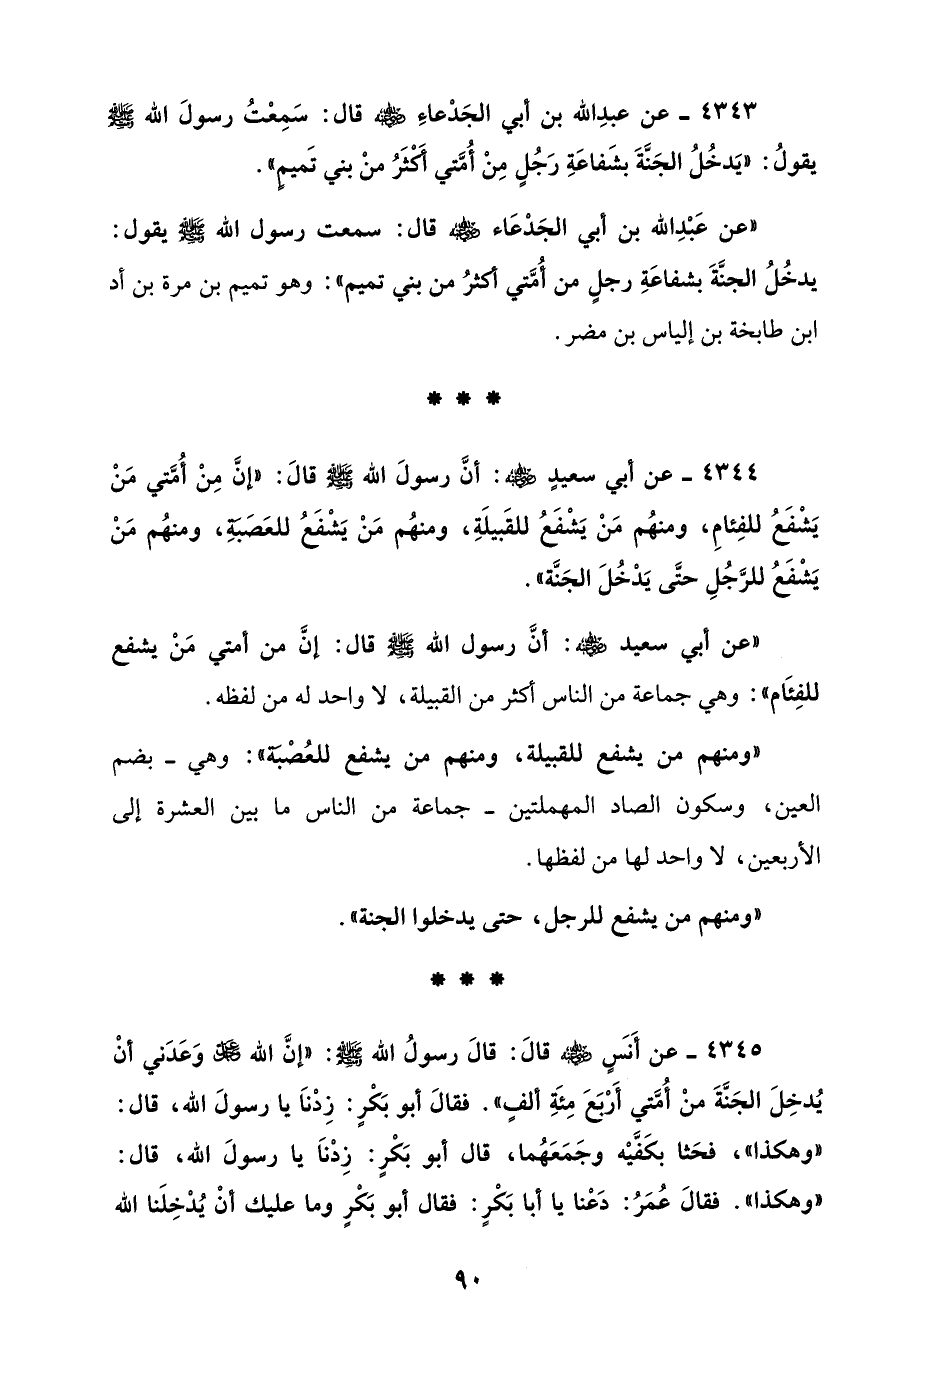 ٤٣٤٣ ـ عن عبدِالله بن أبي الجَدْعاءِ ﵁ قال: سَمِعْتُ رسولَ الله ﷺ
يقولُ: «يَدخُلُ الجَنَّةَ بشَفاعَةِ رَجُلٍ مِنْ أُمَّتي أَكْثَرُ منْ بني تَميمٍ».
«عن عَبْدِالله بن أبي الجَدْعَاء ﵁ قال: سمعت رسول الله ﷺ يقول:
يدخُلُ الجنَّةَ بشفاعَةِ رجلٍ من أُمَّتي أكثرُ من بني تميم»: وهو تميم بن مرة بن أد
ابن طابخة بن إلياس بن مضر.
* * *
٤٣٤٤ ـ عن أبي سعيدٍ ﵁: أنَّ رسولَ الله ﷺ قالَ: «إنَّ مِنْ أُمَّتي مَنْ
يَشْفَعُ للفِئامِ، ومنهُم مَنْ يَشْفَعُ للقَبيلَةِ، ومنهُم مَنْ يَشْفَعُ للعَصَبَةِ، ومنهُم مَنْ
يَشْفَعُ للرَّجُلِ حتَّى يَدْخُلَ الجَنَّة».
«عن أبي سعيد ﵁: أنَّ رسول الله ﷺ قال: إنَّ من أمتي مَنْ يشفع
للفِئَام»: وهي جماعة من الناس أكثر من القبيلة، لا واحد له من لفظه.
«ومنهم من يشفع للقبيلة، ومنهم من يشفع للعُصْبَة»: وهي ـ بضم
العين، وسكون الصاد المهملتين ـ جماعة من الناس ما بين العشرة إلى
الأربعين، لا واحد لها من لفظها.
«ومنهم من يشفع للرجل، حتى يدخلوا الجنة».
* * *
٤٣٤٥ ـ عن أَنَسٍ ﵁ قالَ: قالَ رسولُ الله ﷺ: «إنَّ الله ﷻ وَعَدَني أنْ
يُدخِلَ الجَنَّةَ منْ أُمَّتي أَرْبَعَ مِئَةِ ألفٍ». فقالَ أبو بَكْرٍ: زِدْنَا يا رسولَ الله، قال:
«وهكذا»، فحَثا بكَفَّيْه وجَمَعَهُما، قال أبو بَكْرٍ: زِدْنَا يا رسولَ الله، قال:
«وهكذا». فقالَ عُمَرُ: دَعْنا يا أبا بَكْرٍ: فقال أبو بَكْرٍ وما عليك أنْ يُدْخِلَنا الله
٩٠